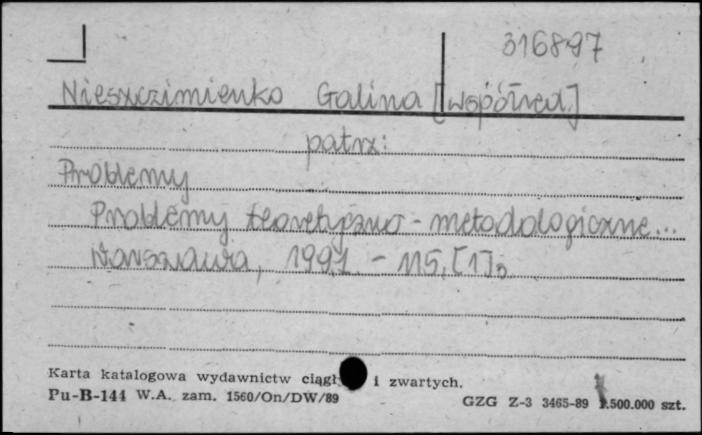 316897
Nieszczimienko Galina [współred.]
patrz:
Problemy
Problemy teoretyczno-metodologiczne...
Warszawa, 1991. - 115, [1] s.
Karta katalogowa wydawnictw ciągł i zwartych.
Pu-B-144 W.A. zam. 1560/On/DW/89
GZG Z-3 3465-89 1.500.000 szt.